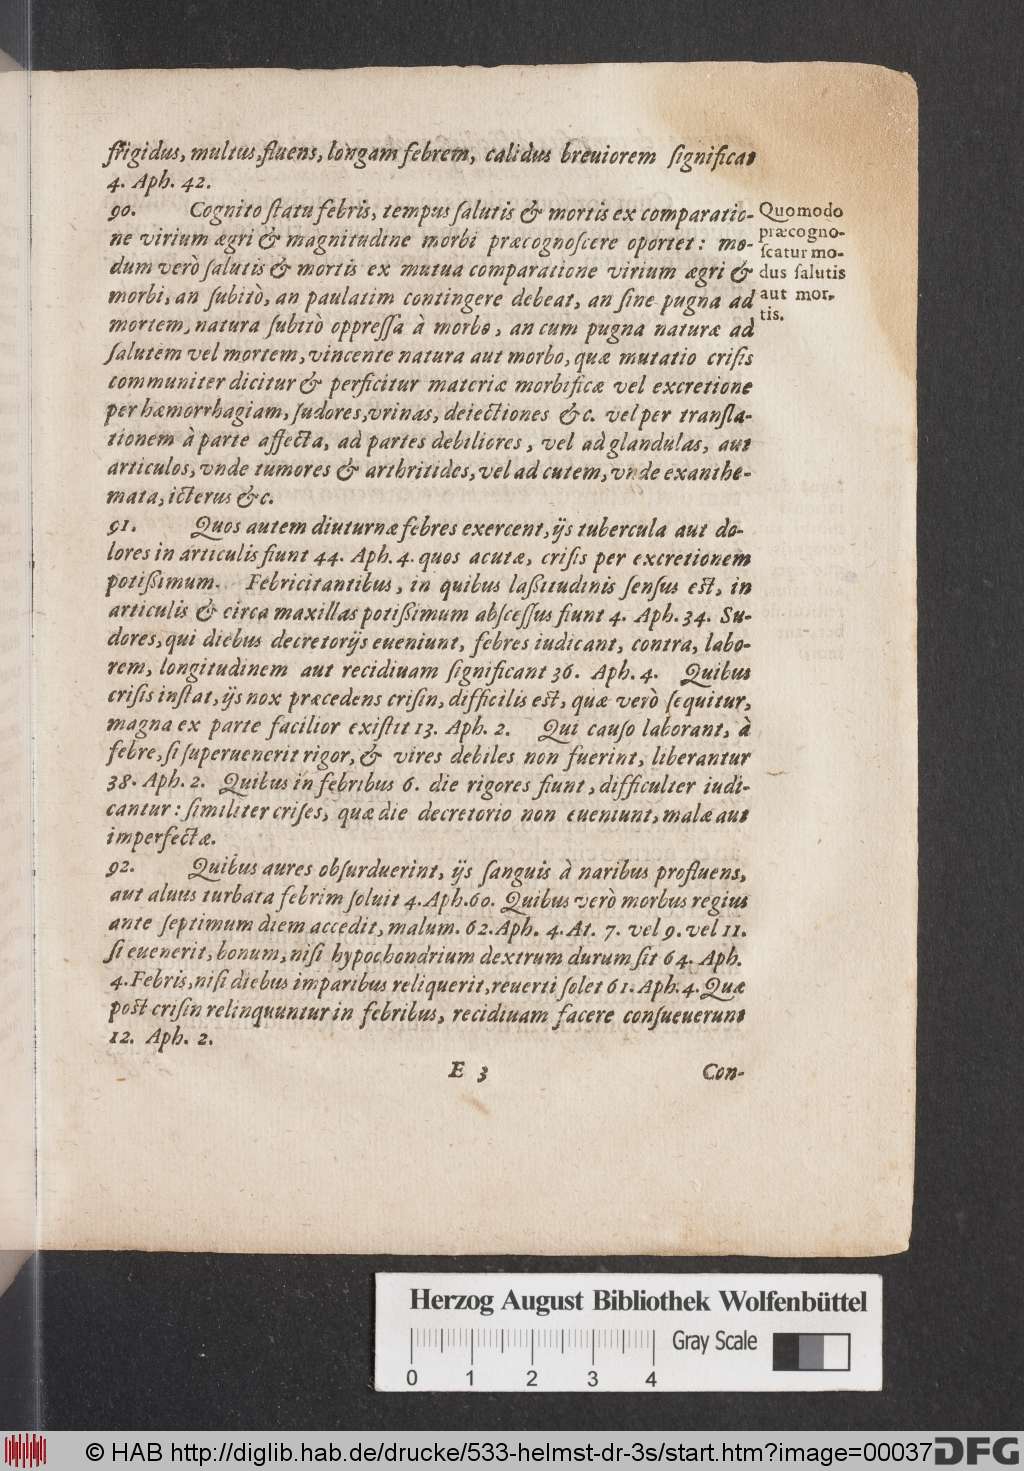 frigidus, multus, fluens, longam febrem, calidus breuiorem ſignificat
4. Aph. 42.
90. Cognito ſtatu febris, tempus ſalutis & mortis ex comparatio-
ne virium ægri & magnitudine morbi præcognoſcere oportet: mo-
dum verò ſalutis & mortis ex mutua comparatione virium ægri &
morbi, an ſubitò, an paulatim contingere debeat, an ſine pugna ad
mortem, natura ſubitò oppreſſa à morbo, an cum pugna naturæ ad
ſalutem vel mortem, vincente natura aut morbo, quæ mutatio criſis
communiter dicitur & perficitur materiæ morbificæ vel excretione
per hæmorrhagiam, ſudores, vrinas, deiectiones &c. vel per tranſla-
tionem à parte affecta, ad partes debiliores, vel ad glandulas, aut
articulos, vnde tumores & arthritides, vel ad cutem, vnde exanthe-
mata, icterus &c.
Quomodo
præcogno-
ſcatur mo-
dus ſalutis
aut mor-
tis.
91. Quos autem diuturnæ febres exercent, ijs tubercula aut do-
lores in articulis fiunt 44. Aph. 4. quos acutæ, criſis per excretionem
potißimum. Febricitantibus, in quibus laßitudinis ſenſus eſt, in
articulis & circa maxillas potißimum abſceſſus fiunt 4. Aph. 34. Su-
dores, qui diebus decretorijs eueniunt, febres iudicant, contra, labo-
rem, longitudinem aut recidiuam ſignificant 36. Aph. 4. Quibus
criſis inſtat, ijs nox præcedens criſin, difficilis eſt, quæ verò ſequitur,
magna ex parte facilior exiſtit 13. Aph. 2. Qui cauſo laborant, à
febre, ſi ſuperuenerit rigor, & vires debiles non fuerint, liberantur
38. Aph. 2. Quibus in febribus 6. die rigores fiunt, difficulter iudi-
cantur: ſimiliter criſes, quæ die decretorio non eueniunt, malæ aut
imperfectæ.
92. Quibus aures obſurduerint, ijs ſanguis à naribus profluens,
aut aluus turbata febrim ſoluit 4. Aph. 60. Quibus verò morbus regius
ante ſeptimum diem accedit, malum. 62. Aph. 4. At. 7. vel 9. vel 11.
ſi euenerit, bonum, niſi hypochondrium dextrum durum ſit 64. Aph.
4. Febris, niſi diebus imparibus reliquerit, reuerti ſolet 61. Aph. 4. Quæ
poſt criſin relinquuntur in febribus, recidiuam facere conſueuerunt
12. Aph. 2.
E 3 Con-
Herzog August Bibliothek Wolfenbüttel
Gray Scale
0 1 2 3 4
© HAB http://diglib.hab.de/drucke/533-helmst-dr-3s/start.htm?image=00037
DFG